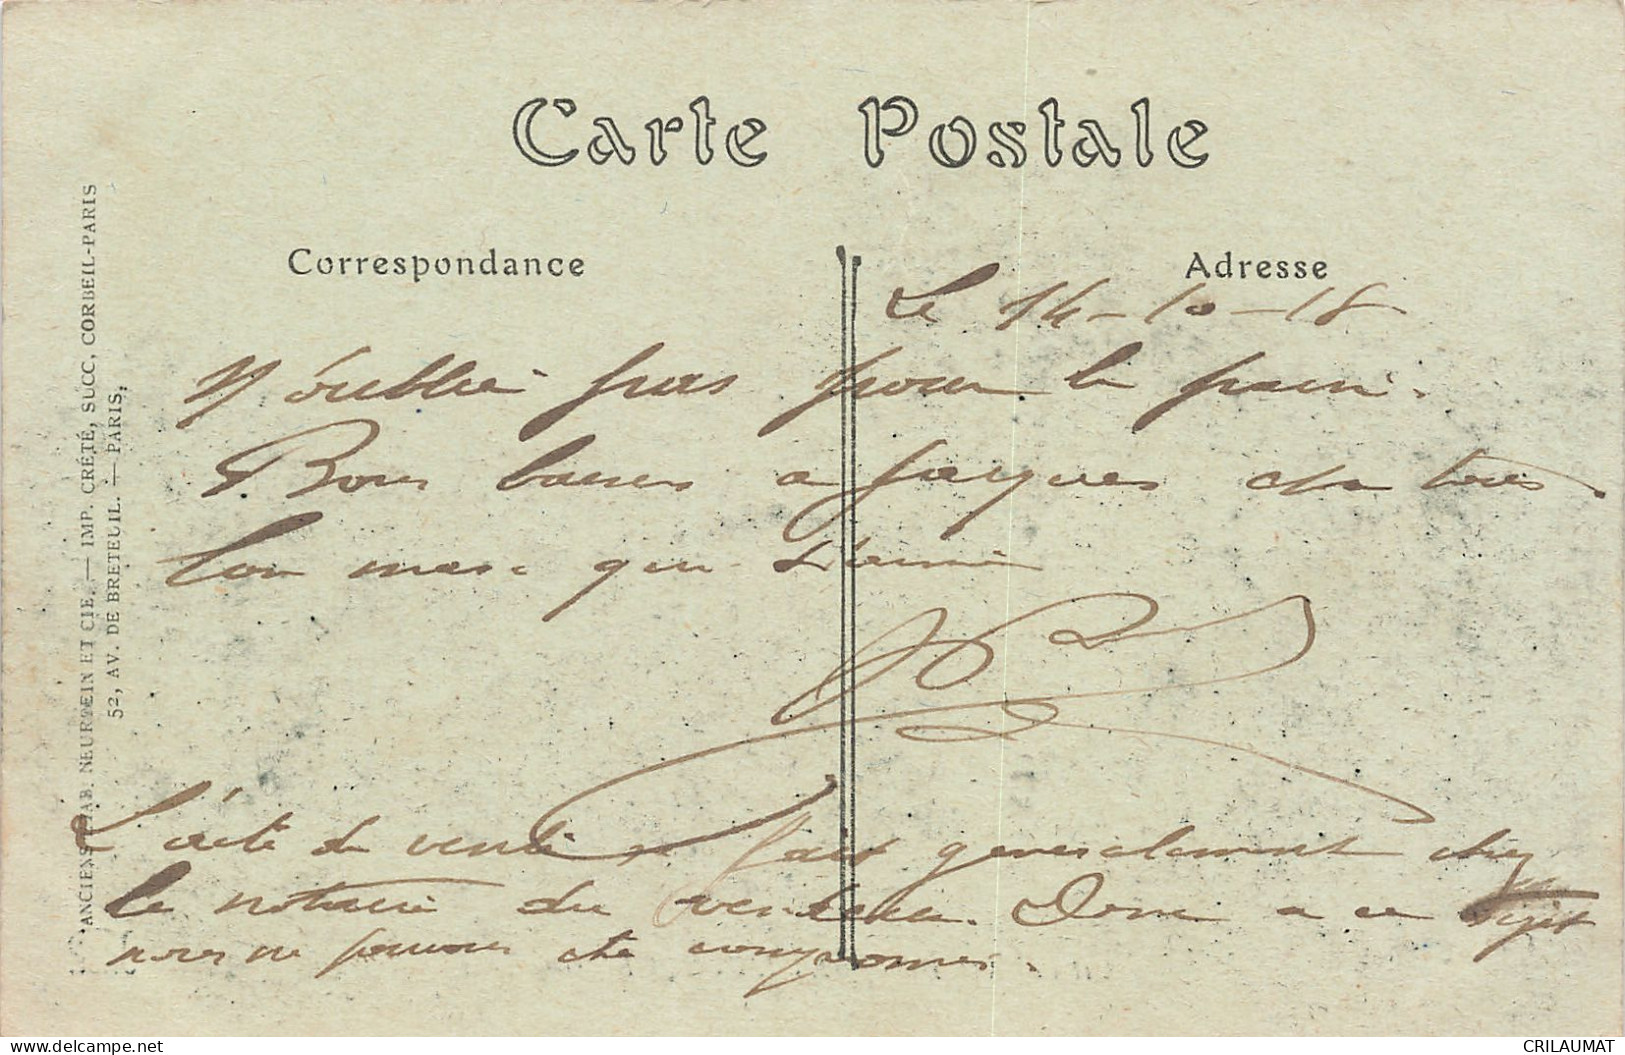 Carte Postale
Correspondance
Adresse
Le 14-10-18
N'oublie pas pour le pain.
Bons baisers a Jacques et a tous
Ton mari qui t'aime
L'acte de vente se fait generalement chez
le notaire du vendeur. Donc a ce sujet
nous ne pouvons etre compromis.
ANCIENS ETAB. NEURDEIN ET CIE. — IMP. CRÉTÉ, SUCC, CORBEIL-PARIS
52, AV. DE BRETEUIL. — PARIS.
delcampe.net
CRILAUMAT